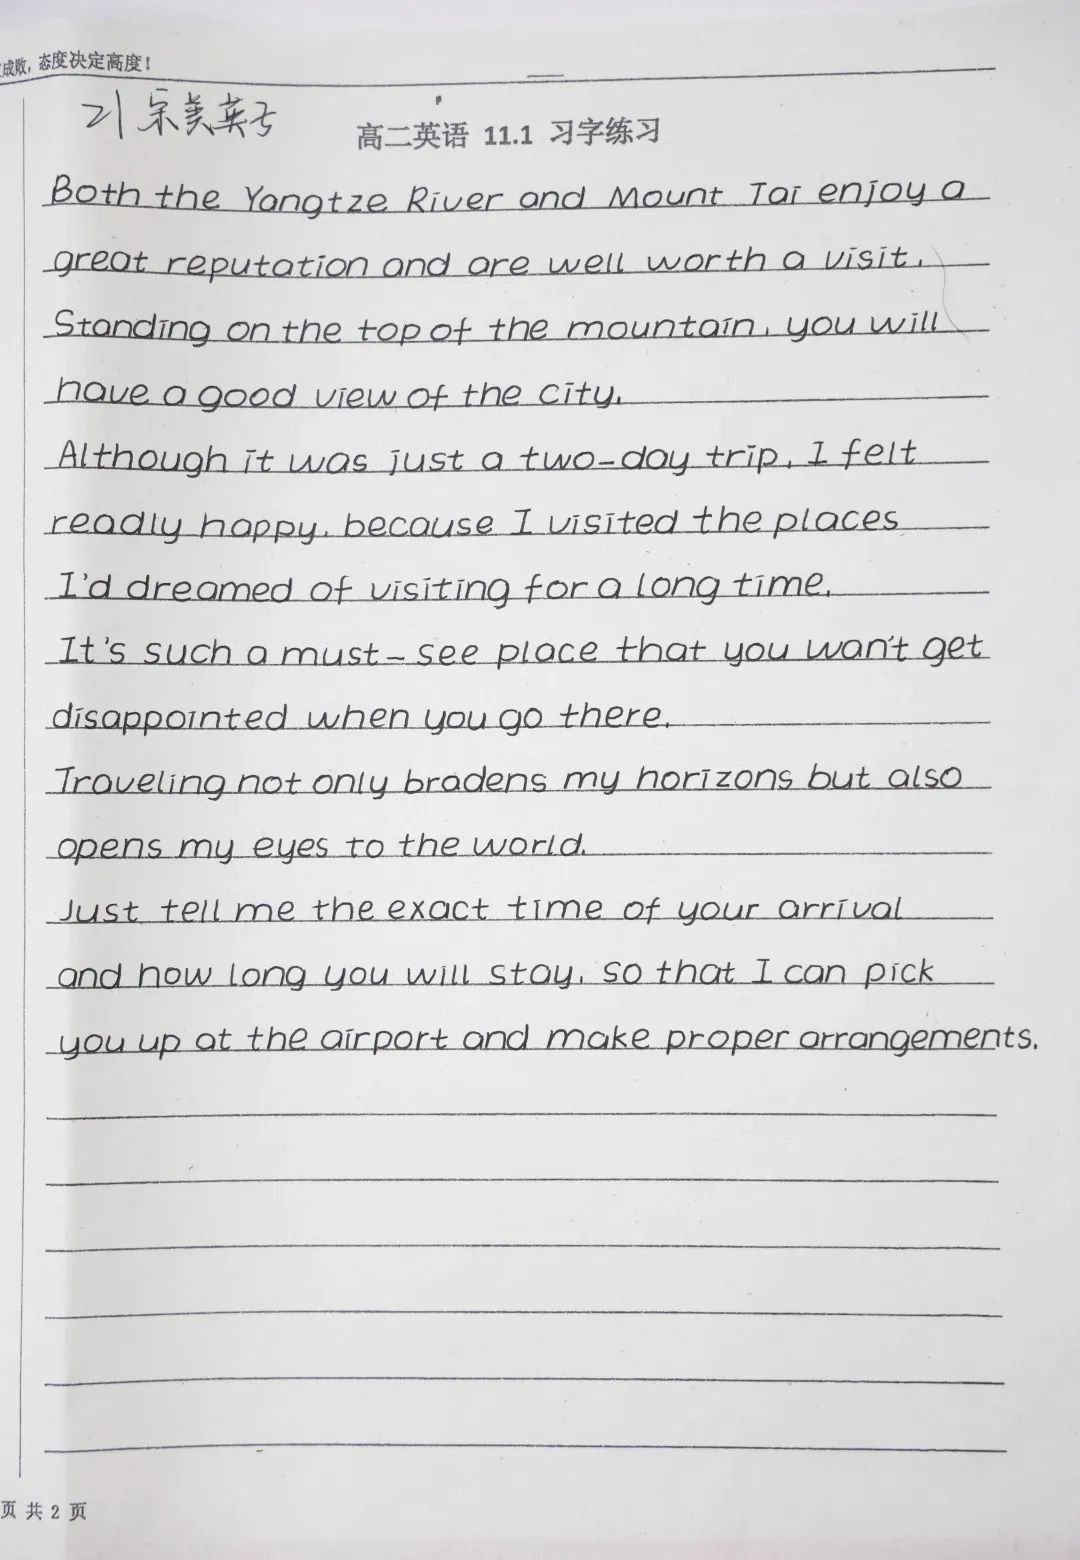 成败,态度决定高度!
21 宗美英子
高二英语 11.1 习字练习
Both the Yangtze River and Mount Tai enjoy a
great reputation and are well worth a visit.
Standing on the top of the mountain, you will
have a good view of the city.
Although it was just a two-day trip, I felt
readly happy, because I visited the places
I'd dreamed of visiting for a long time.
It's such a must-see place that you wan't get
disappointed when you go there.
Traveling not only bradens my horizons but also
opens my eyes to the world.
Just tell me the exact time of your arrival
and how long you will stay, so that I can pick
you up at the airport and make proper arrangements.
页 共 2 页